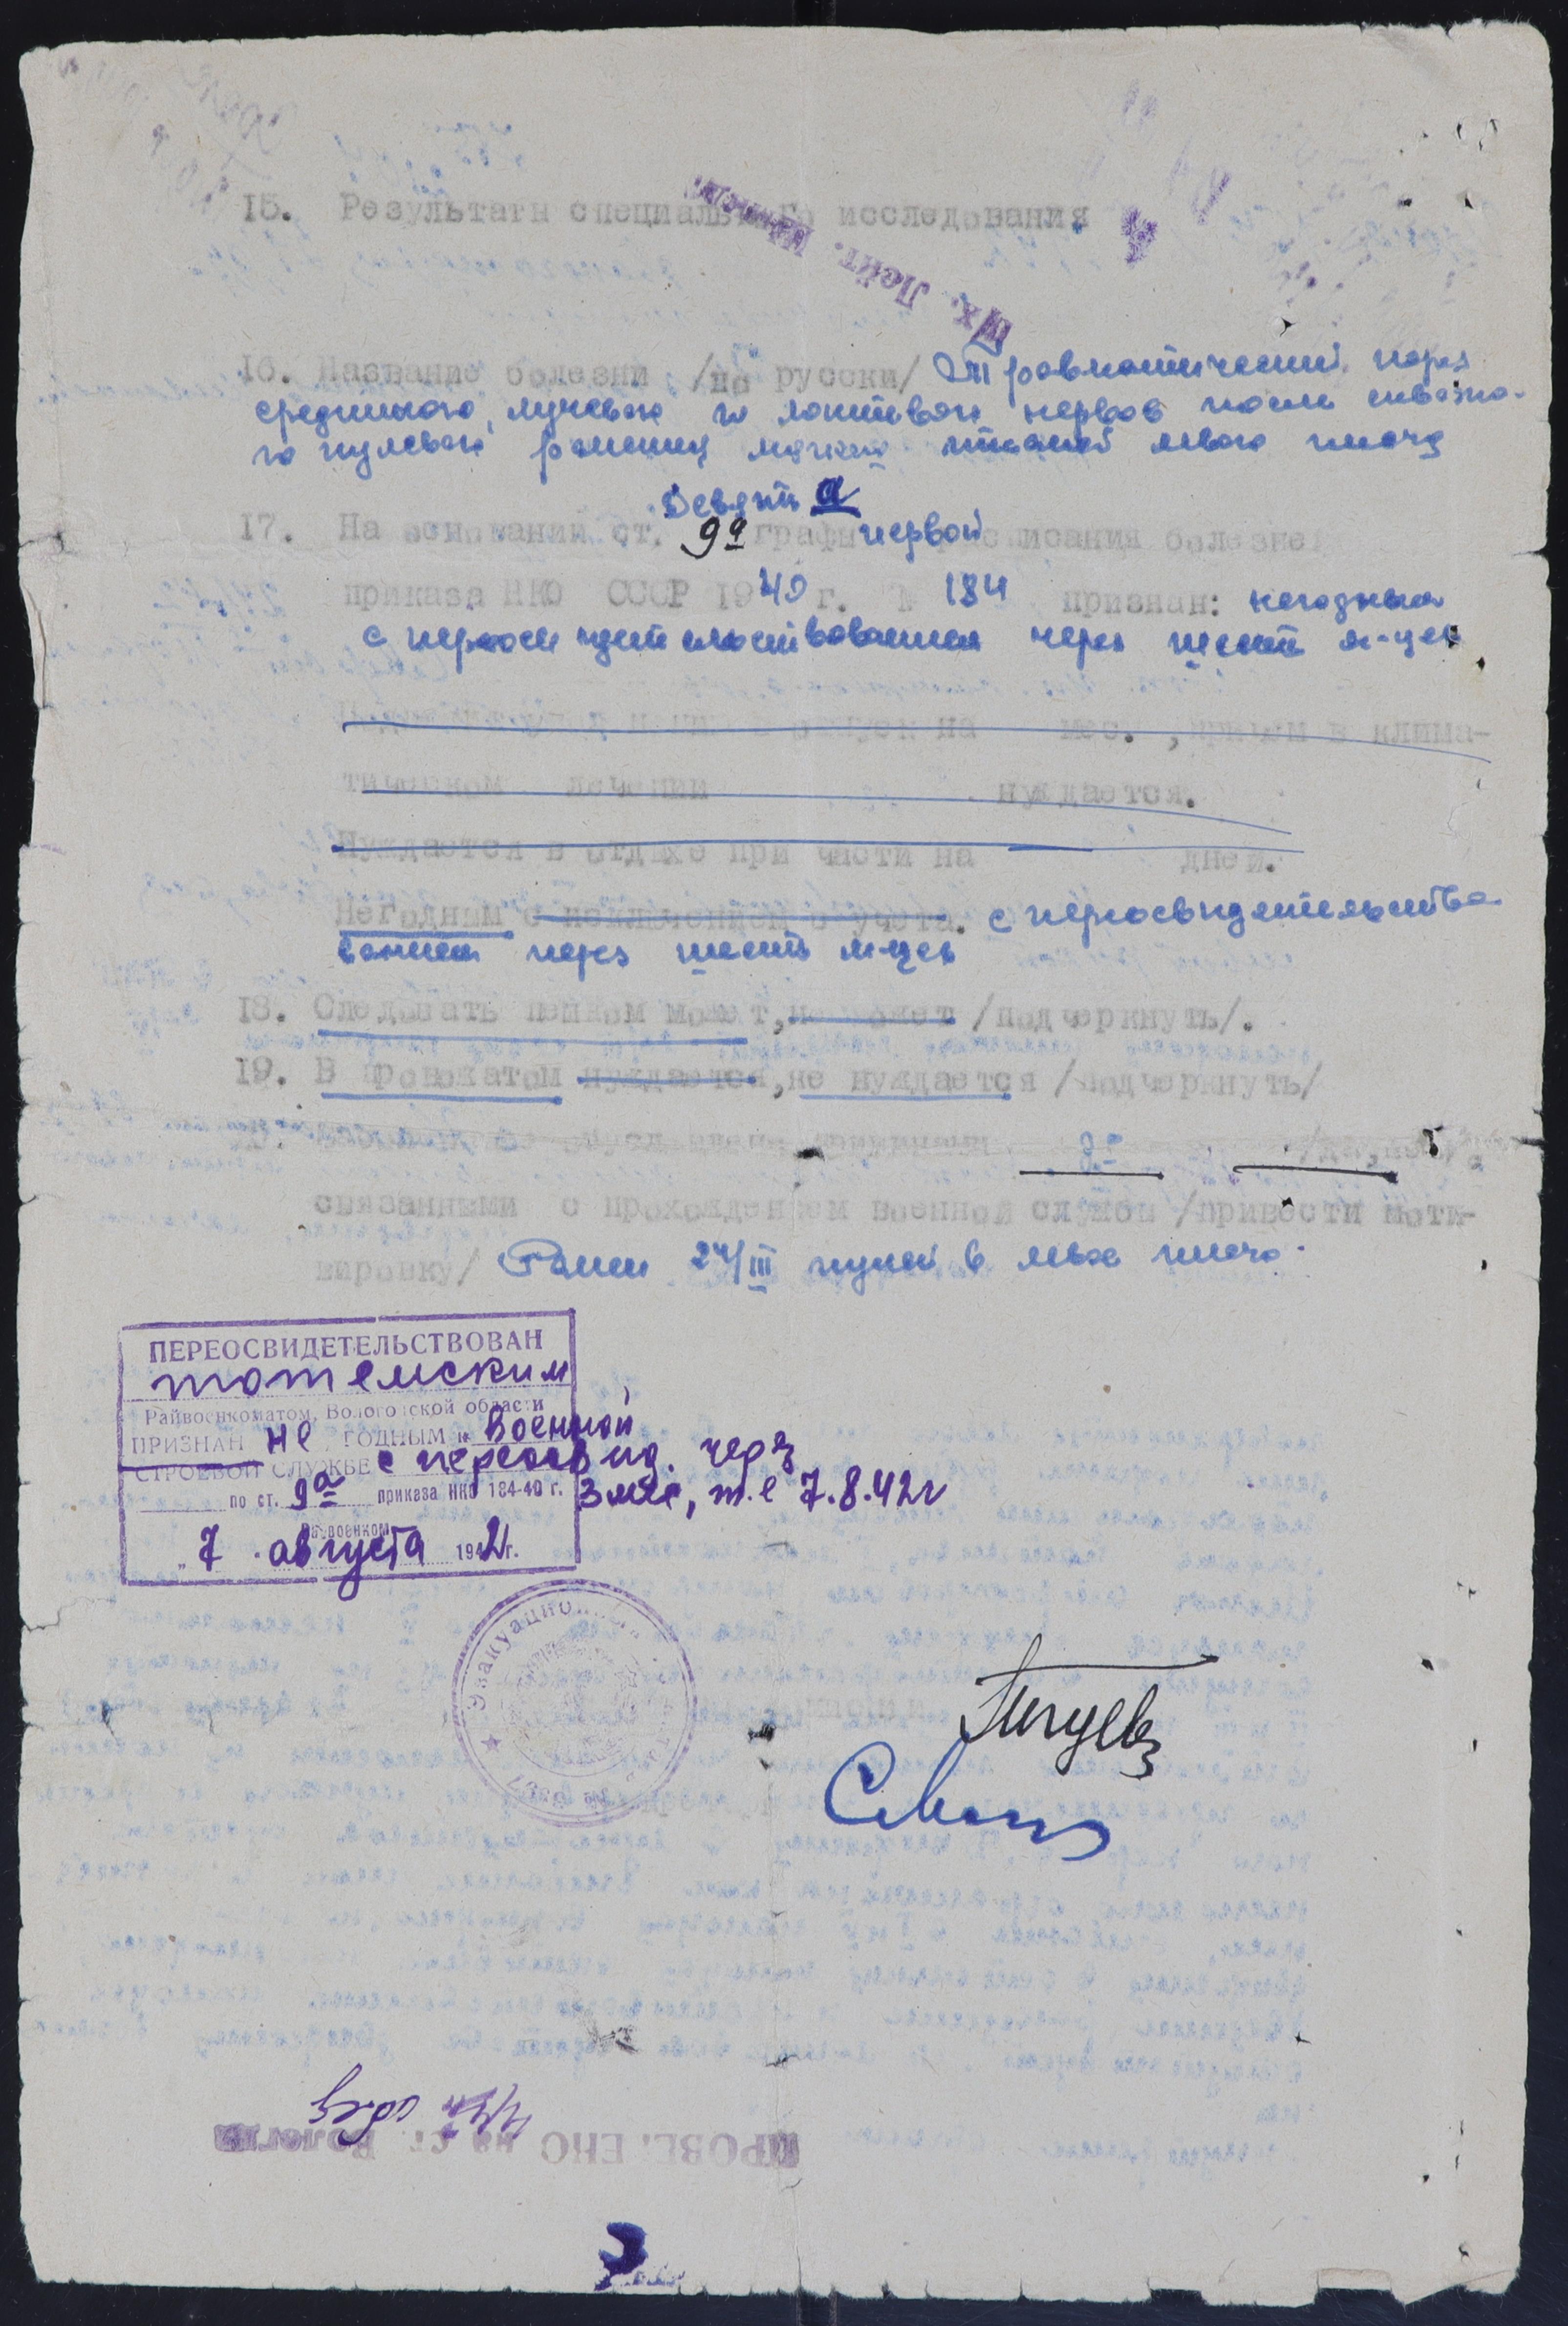 15. Результаты специального исследования
Тех. Лейт.
16. Название болезни /по русски/ Травматический парез
срединного, лучевого и локтевого нервов после сквозно-
го пулевого ранения мягких тканей левого плеча
Девять а
17. На основании ст. 9а графы первой расписания болезней
приказа НКО СССР 1940 г. № 184 признан: негодным
с переосвидетельствованием через шесть м-цев
отпуск на мес., причем в клима-
тическом лечении нуждается.
Нуждается в отдыхе при части на дней.
Негодным с исключением с учета. с переосвидетельство-
ванием через шесть м-цев
18. Следовать пешком может, не может /подчеркнуть/.
19. В провожатом нуждается, не нуждается /подчеркнуть/
да
связанными с прохождением военной службы /привести моти-
вировку/ Ранен 24/III пулей в левое плечо.
ПЕРЕОСВИДЕТЕЛЬСТВОВАН
тотемским
Райвоенкоматом, Вологодской области
ПРИЗНАН не ГОДНЫМ к военной
СТРОЕВОЙ СЛУЖБЕ с переосвид. через
по ст. 9а приказа НКО 184-40 г. 3 мес, т.е 7.8.42г
Райвоенком
„7 августа 1942г.
Эвакуационный
ПРОВЕДЕНО на ст. Вологда